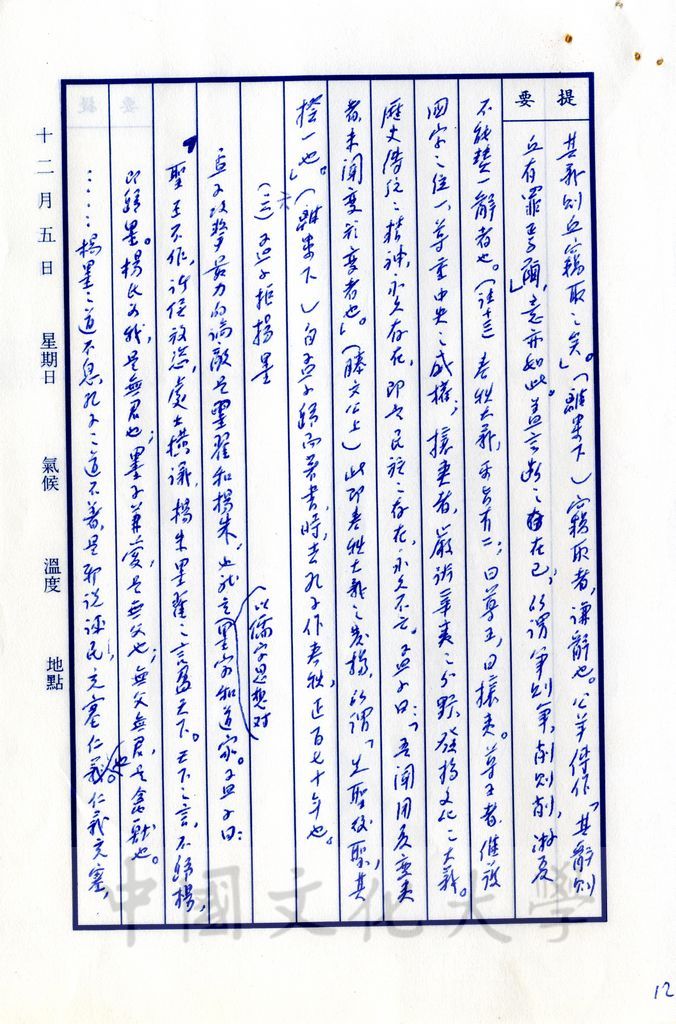 提要
其義則丘竊取之矣。」(離婁下)竊取者,謙辭也。公羊傳作「其辭則
丘有罪焉爾」,意亦如此。蓋言斷之在己,所謂筆則筆,削則削,游夏
不能贊一辭者也。(註十三)春秋大義,要旨有二;曰尊王,曰攘夷。尊王者,維護
國家之統一,尊重中央之威權;攘夷者,嚴許華夷之分野,發揚文化之大義。
歷史傳統之精神,永久存在,即是民族之存在,永久不亡。孟子曰:「吾聞用夏變夷
者,未聞變於夷者也。」(滕文公上)此即春秋大義之發揚,所謂「先聖後聖,其
揆一也。」(離婁下)自孟子歸而著書,時去孔子作春秋,正百七十年也。
(六)孟子拒楊墨
(以儒家思想對
孟子攻擊最力的論敵是墨翟和楊朱,也就是墨家和道家。孟子曰:
聖王不作,諸侯放恣,處士橫議,楊朱墨翟之言盈天下。天下之言,不歸楊,
即歸墨。楊氏為我,是無君也;墨子兼愛,是無父也;無父無君,是禽獸也。
……楊墨之道不息,孔子之道不著,是邪說誣民,充塞仁義也。仁義充塞,
十二月五日 星期日 氣候 溫度 地點
中國文化大學
12